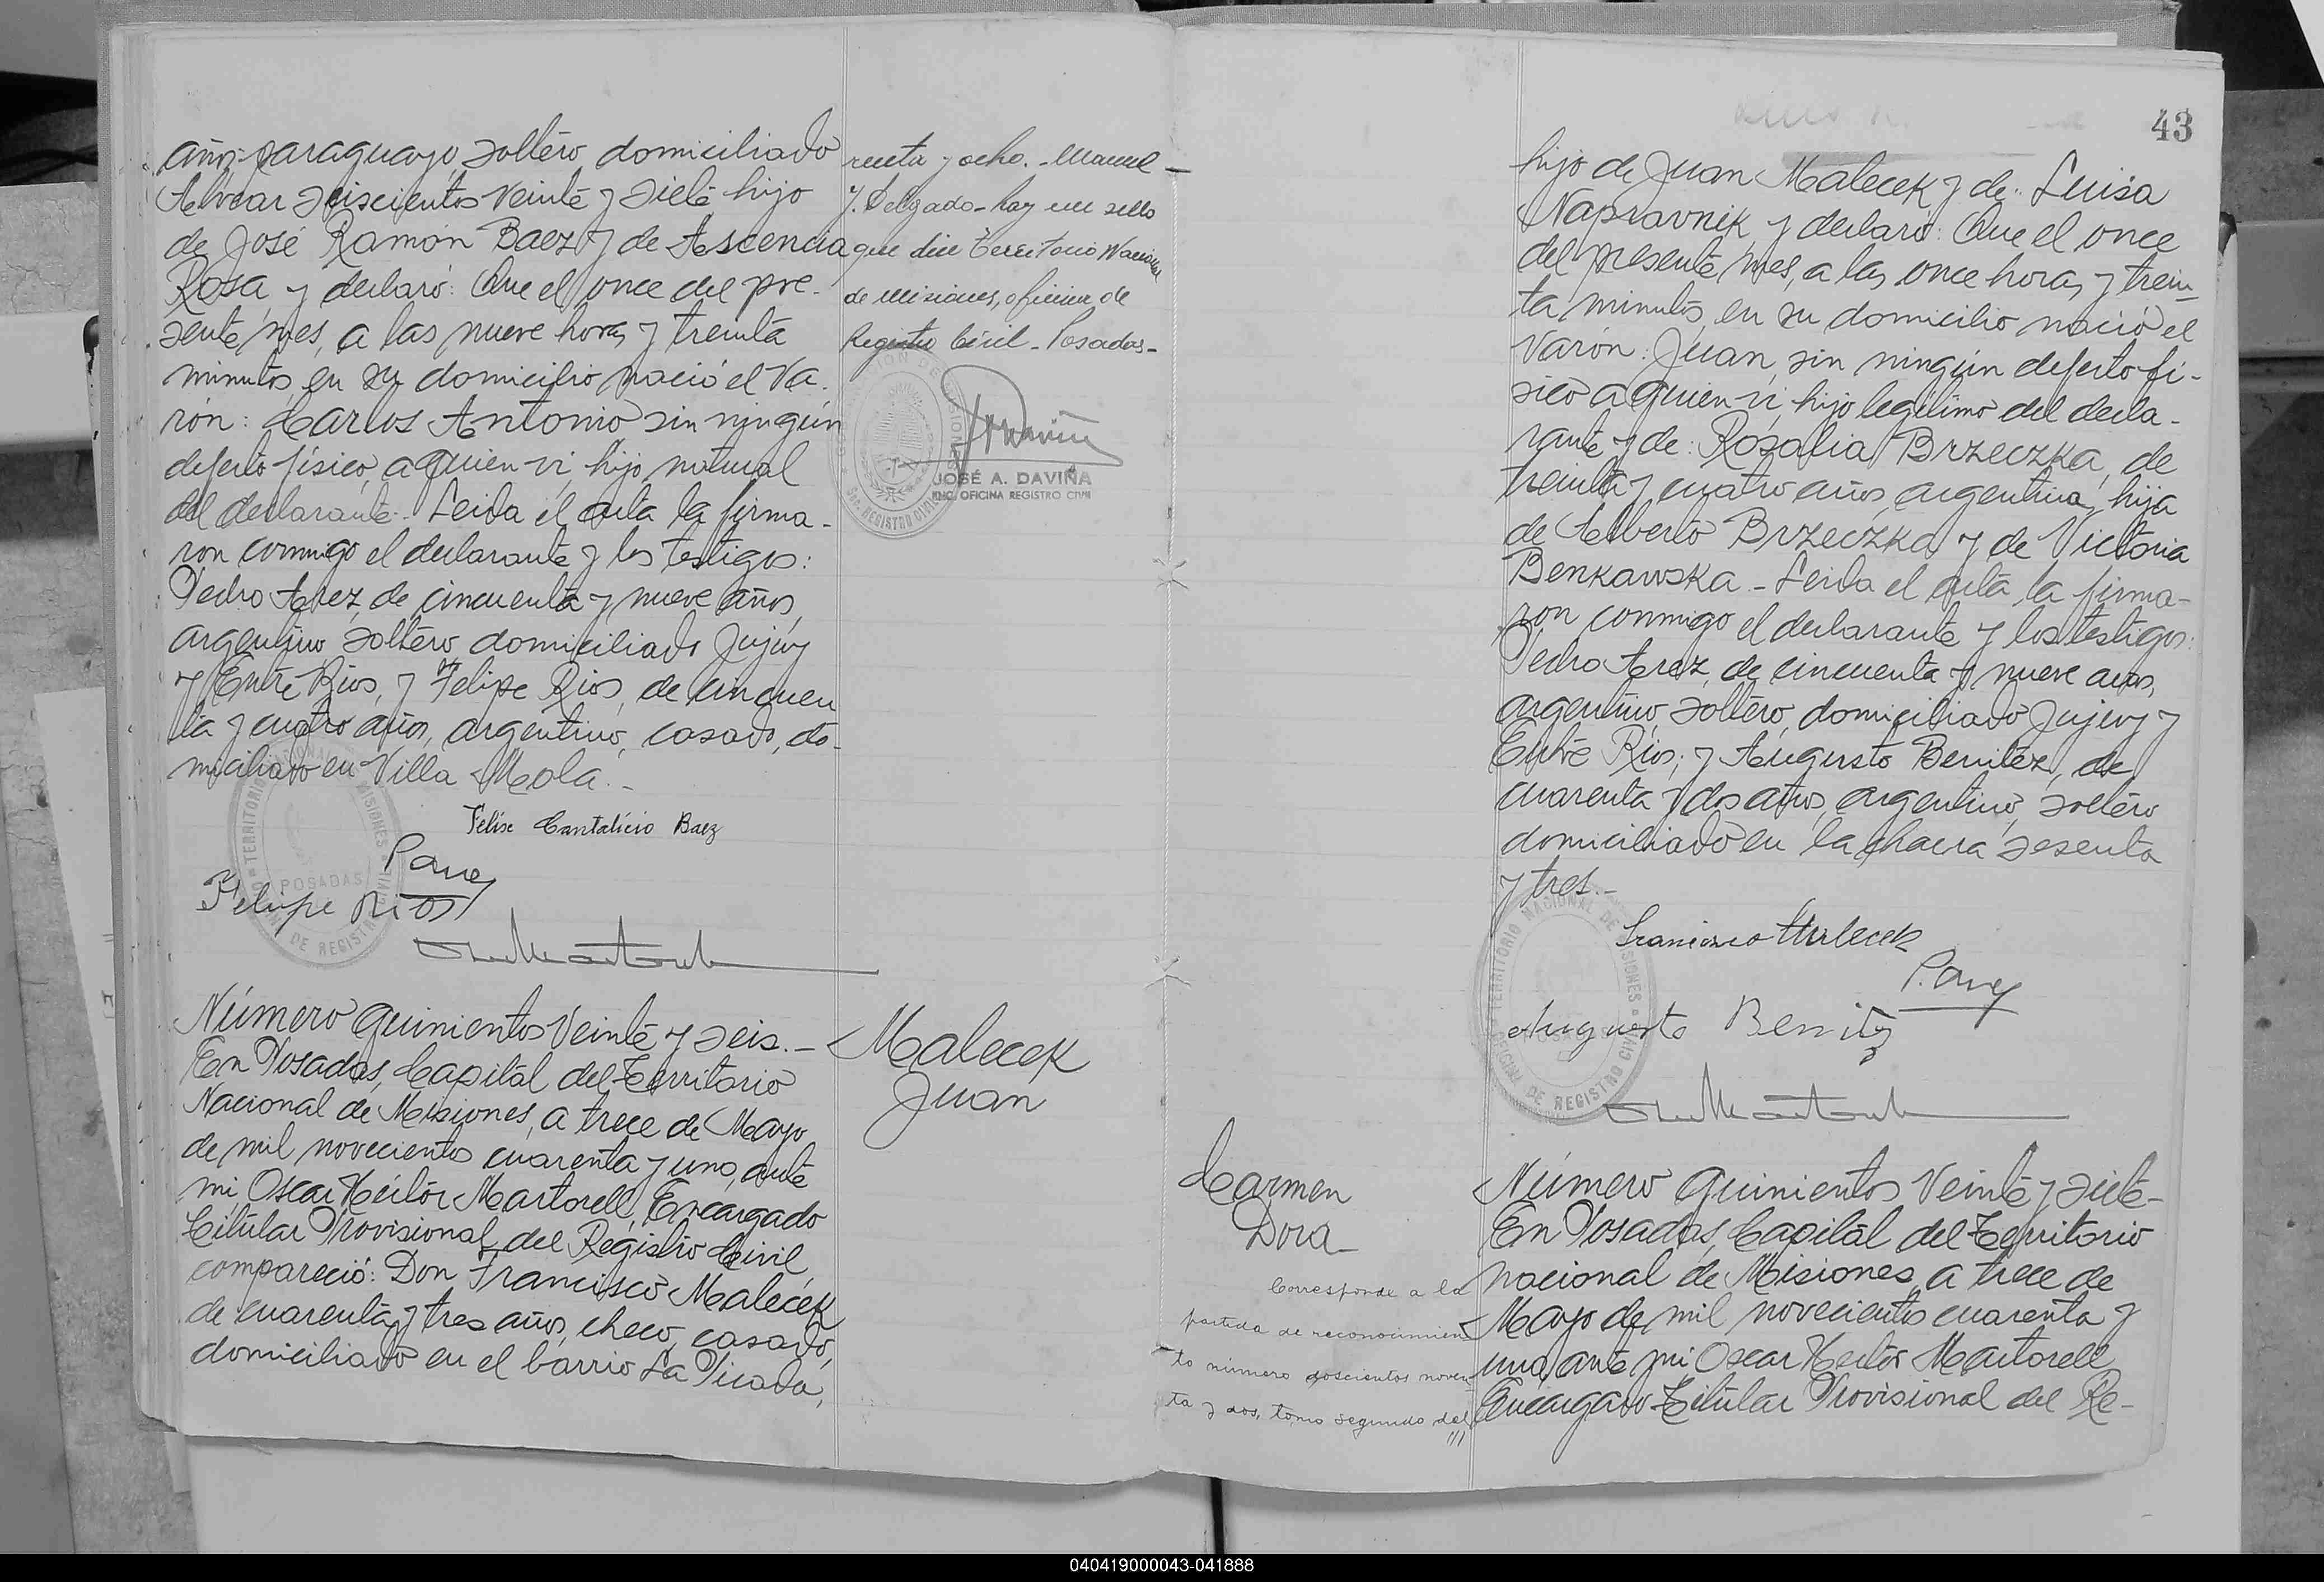 años, paraguayo, soltero, domiciliado
Alvear seiscientos veinte y siete hijo
de José Ramón Baez y de Ascencia
Rosa, y declaró: Que el once del pre-
sente mes, a las nueve horas y treinta
minutos, en su domicilio nació el va-
rón: Carlos Antonio sin ningún
defecto físico, a quien vi, hijo natural
del declarante. Leida el acta la firma-
ron conmigo el declarante y los testigos:
Pedro Arez, de cincuenta y nueve años,
argentino soltero domiciliado Jujuy
y Entre Rios, y Felipe Rios, de cincuen
ta y cuatro años, argentino, casado, do-
miciliado en Villa Mola.-
Felix Cantalicio Baez
P. Arez
Felipe Rios
TERRITORIO NACIONAL DE MISIONES
POSADAS
OFICINA DE REGISTRO CIVIL
renta y ocho. - Manuel
J. Delgado - hay un sello
que dice Territorio Nacional
de Misiones, oficina de
Registro Civil - Posadas -
JOSÉ A. DAVIÑA
ENC. OFICINA REGISTRO CIVIL
Número quinientos veinte y seis.-
En Posadas, Capital del Territorio
Nacional de Misiones, a trece de Mayo
de mil novecientos cuarenta y uno, ante
mi, Oscar Héctor Martorell, Encargado
Titular Provisional del Registro Civil,
compareció: Don Francisco Malecek
de cuarenta y tres años, checo, casado,
domiciliado en el barrio La Picada,
Malecek
Juan
43
hijo de Juan Malecek y de: Luisa
Napravnik, y declaró: Que el once
del presente mes, a las once horas y trein-
ta minutos, en su domicilio nació el
varón: Juan, sin ningún defecto fí-
sico a quien vi, hijo legítimo del decla-
rante y de: Rosalia Brzeczka, de
treinta y cuatro años, argentina, hija
de Alberto Brzeczka y de Victoria
Benkawska - Leida el acta, la firma-
ron conmigo el declarante y los testigos:
Pedro Arez, de cincuenta y nueve años,
argentino, soltero, domiciliado Jujuy y
Entre Rios; y Augusto Benitez, de
cuarenta y dos años, argentino, soltero
domiciliado en la chacra sesenta
y tres.-
Francisco Malecek
P. Arez
Augusto Benitez
TERRITORIO NACIONAL DE MISIONES
POSADAS
OFICINA DE REGISTRO CIVIL
Carmen
Dora-
Corresponde a la
partida de reconocimien-
to número doscientos noven-
ta y dos, tomo segundo del
///
Número quinientos veinte y siete-
En Posadas, Capital del Territorio
nacional de Misiones, a trece de
Mayo de mil novecientos cuarenta y
uno, ante mi Oscar Hector Martorell,
Encargado Titular Provisional del Re-
040419000043-041888